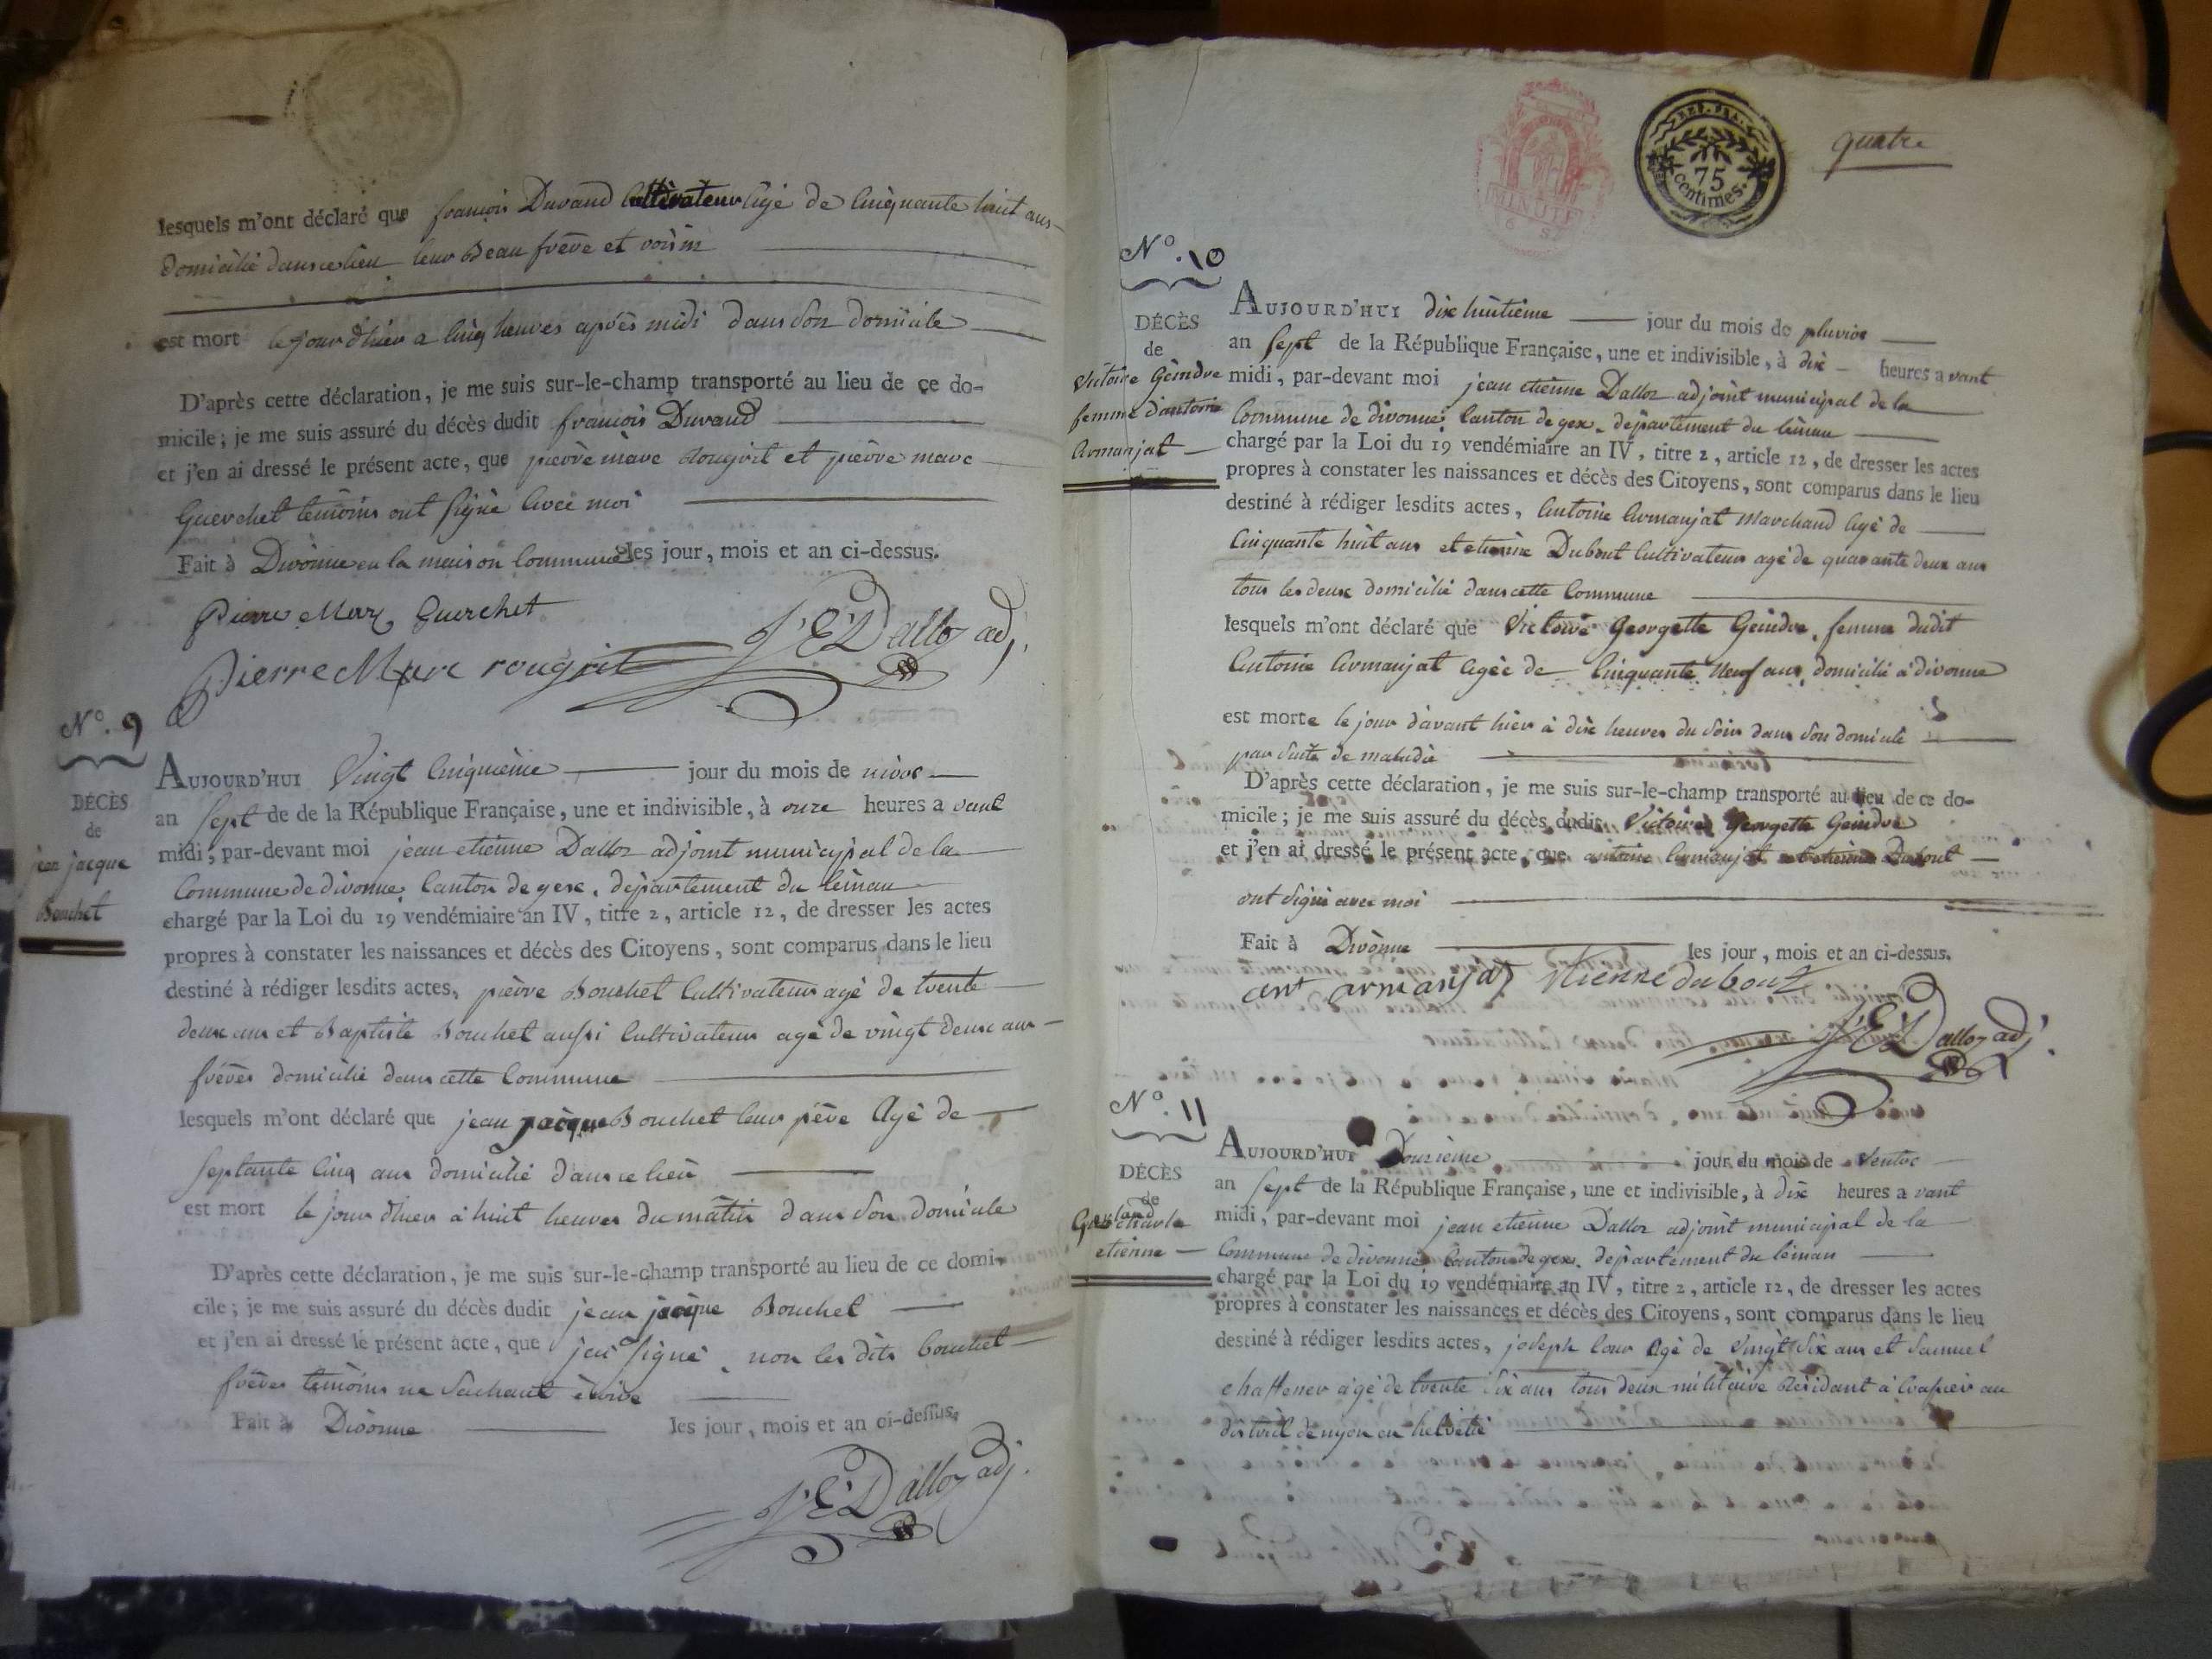 lesquels m'ont déclaré que françois Durand Cultivateur agé de Cinquante huit ans
domicilié dans ce lieu leur Beau frère et voisin
est mort le jour d'hier a Cinq heures après midi dans son domicile
D'après cette déclaration, je me suis sur-le-champ transporté au lieu de ce do-
micile; je me suis assuré du décès dudit françois Durand
et j'en ai dressé le présent acte, que pierre marc Rougrit et pierre marc
Guerchet temoins ont signé avec moi
Fait à Divonne en la maison Commune les jour, mois et an ci-dessus.
Pierre Marc Guerchet
J. E. Dalloz adj.
Pierre Marc rougrit
N°. 9
DÉCÈS
de
jean jacque
Bouchet
AUJOURD'HUI Vingt Cinquième jour du mois de nivos
an sept de de la République Française, une et indivisible, à onze heures a vant
midi, par-devant moi jean etienne Dalloz adjoint municipal de la
Commune de divonne, Canton de gex, département du léman
chargé par la Loi du 19 vendémiaire an IV, titre 2, article 12, de dresser les actes
propres à constater les naissances et décès des Citoyens, sont comparus dans le lieu
destiné à rédiger lesdits actes, pierre Bouchet Cultivateur agé de trente
deux ans et Baptiste Bouchet aussi Cultivateur agé de vingt deux ans
frères domicilié dans cette Commune
lesquels m'ont déclaré que jean jacque Bouchet leur père Agé de
septante Cinq ans domicilié dans ce lieu
est mort le jour d'hier a huit heures du matin dans son domicile
D'après cette déclaration, je me suis sur-le-champ transporté au lieu de ce domi-
cile; je me suis assuré du décès dudit jean jacque Bouchet
et j'en ai dressé le présent acte, que j'ai signé, non les dits bouchet
frères temoins ne sachant écrire
Fait à Divonne les jour, mois et an ci-dessus.
J. E. Dalloz adj.
MINUTE
REP. FRA.
75
centimes.
quatre
N°. 10
DÉCÈS
de
Victoire Geindre
femme d'antoine
Armanjat
AUJOURD'HUI dix huitième jour du mois de pluvios
an sept de la République Française, une et indivisible, à dix heures a vant
midi, par-devant moi jean etienne Dalloz adjoint municipal de la
Commune de divonne, Canton de gex, département du léman
chargé par la Loi du 19 vendémiaire an IV, titre 2, article 12, de dresser les actes
propres à constater les naissances et décès des Citoyens, sont comparus dans le lieu
destiné à rédiger lesdits actes, Antoine Armanjat Marchand Agé de
Cinquante huit ans et etienne Dubout Cultivateur agé de quarante deux ans
tous les deux domicilié dans cette Commune
lesquels m'ont déclaré que Victoire Georgette Geindre, femme dudit
Antoine Armanjat Agée de Cinquante Neuf ans, domicilié a divonne
est morte le jour d'avant hier à dix heures du soir dans son domicile
par suite de maladie
D'après cette déclaration, je me suis sur-le-champ transporté au lieu de ce do-
micile; je me suis assuré du décès dudit Victoire Georgette Geindre
et j'en ai dressé le présent acte, que antoine Armanjat et etienne Dubout
ont signé avec moi
Fait à Divonne les jour, mois et an ci-dessus.
ant armanjat Etienne dubout
J. E. Dalloz adj.
N°. 11
DÉCÈS
de
etienne
AUJOURD'HUI Douzième jour du mois de Ventos
an sept de la République Française, une et indivisible, à dix heures a vant
midi, par-devant moi jean etienne Dalloz adjoint municipal de la
Commune de divonne, Canton de gex, département du léman
chargé par la Loi du 19 vendémiaire an IV, titre 2, article 12, de dresser les actes
propres à constater les naissances et décès des Citoyens, sont comparus dans le lieu
destiné à rédiger lesdits actes, joseph Agé de Vingt six ans et Samuel
chaffener agé de trente six ans tous deux militaire Résidant à Crassier au
district de nyon en helvétie